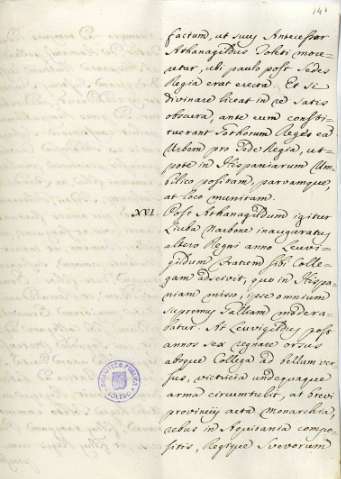 141
factum, ut suus Antecessor
Athanagildus Toleti more-
retur, ubi paulo post Sedes
Regia erat erecta. Et si
divinare liceat in re satis
obscura, ante eum consti-
tuerant Gothorum Reges ea
Urbem pro Sede Regia, ut-
pote in Hispaniarum Um-
bilico positam, parvamque,
at loco munitam.
XVI. Post Athanagildum igitur
Liuba Narbone inauguratus
altero Regni anno Leuvi-
gildum fratrem sibi Colle-
gam adscivit, quo in Hispa-
niam misso, ipse omnium
supremus Galliam modera-
batur. At Leuvigildus post
annos sex regnare orsus
absque Collega ad bellum ver-
sus, victricia undequaque
arma circumtulit, at brevi
provincijs acta Monarchia,
rebus in Aquitania compo-
sitis, Regique Suevorum
BIBLIOTECA PUBLICA
TOLEDO